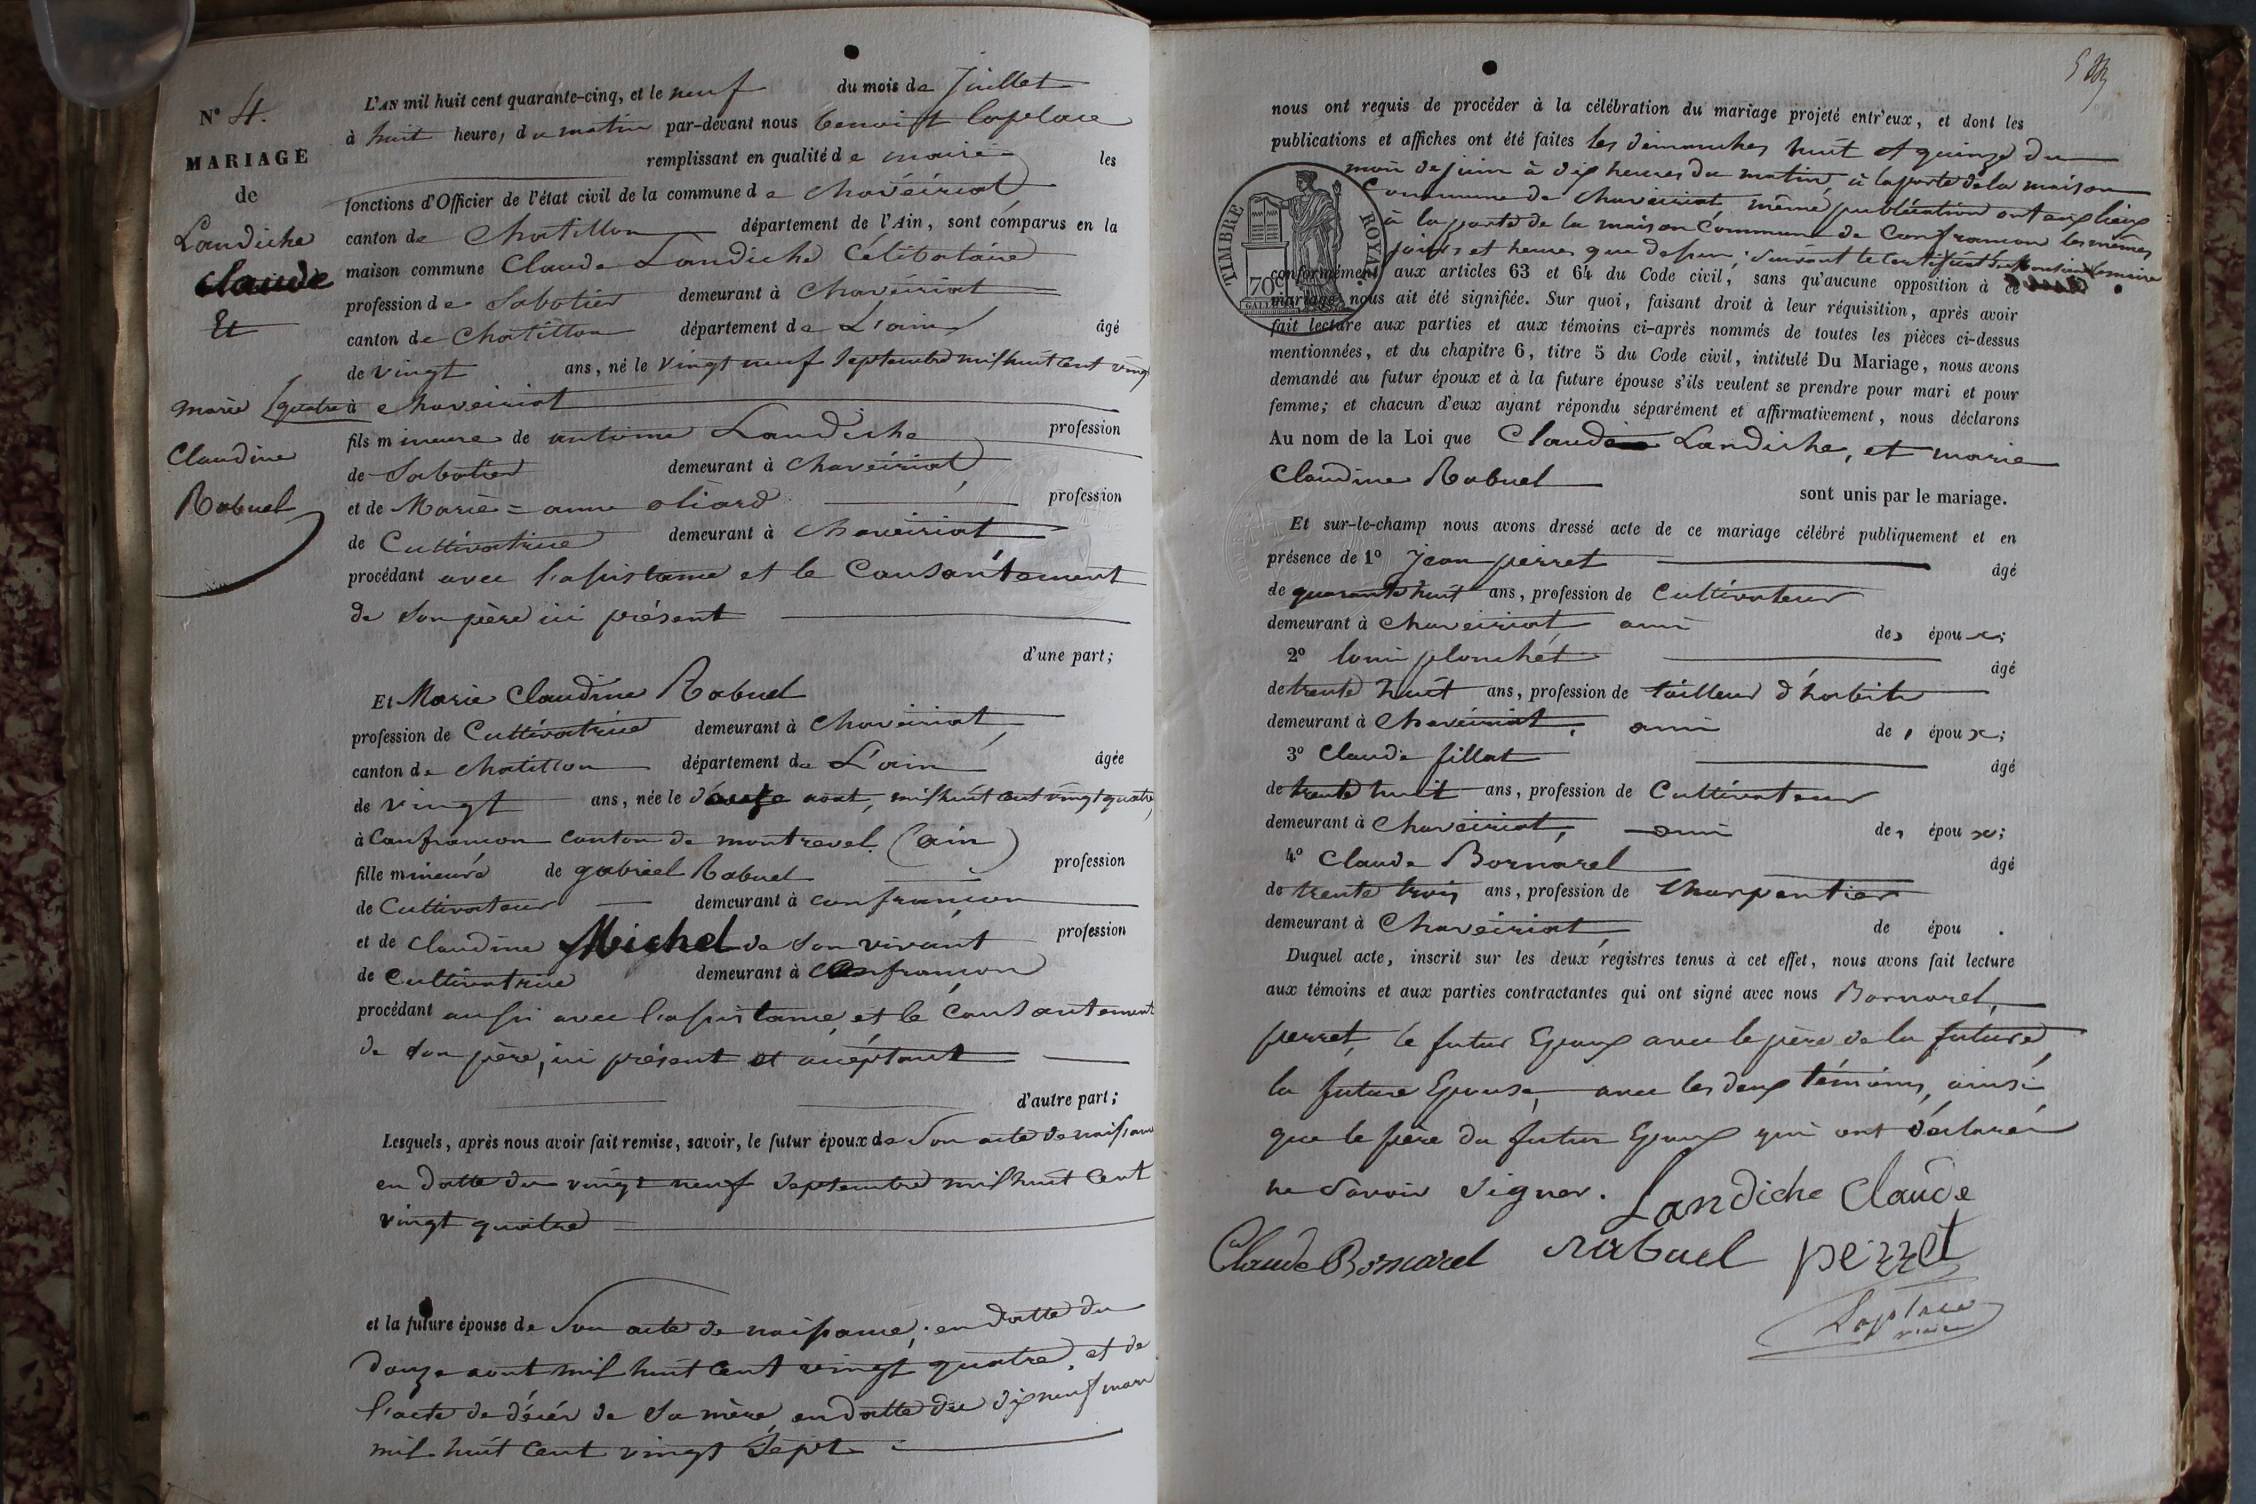 N° 4.
MARIAGE
de
Landiche
Claude
Et
Marie
Claudine
Rabuel
L'AN mil huit cent quarante-cinq, et le neuf du mois de Juillet
à huit heures du matin par-devant nous Benoist Laplace
remplissant en qualité de maire les
fonctions d'Officier de l'état civil de la commune de Chaveïriat
canton de Chatillon département de l'Ain, sont comparus en la
maison commune Claude Landiche Célibataire
profession de Sabotier demeurant à Chaveïriat
canton de Chatillon département de L'ain âgé
de vingt ans, né le vingt neuf Septembre mil huit cent vingt
quatre à Chaveiriat
fils mineure de antoine Landiche profession
de Sabotier demeurant à Chaveïriat
et de Marie=anne oliard profession
de Cultivatrice demeurant à Chaveiriat
procédant avec l'assistance et le Consantement
de son père ici présent
d'une part;
Et Marie Claudine Rabuel
profession de Cultivatrice demeurant à Chaveiriat
canton de Chatillon département de L'ain âgée
de vingt ans, née le douze aout, mil huit cent vingt quatre
à Confrancon canton de montrevel (ain)
fille mineure de gabriel Rabuel profession
de Cultivateur demeurant à confrancon
et de Claudine Michel de son vivant profession
de Cultivatrice demeurant à Confrancon
procédant aussi avec l'assistance et le Consantement
de son père, ici présent et acceptant
d'autre part;
Lesquels, après nous avoir fait remise, savoir, le futur époux de Son acte de naissance
en datte du vingt neuf Septembre mil huit cent
vingt quatre
et la future épouse de Son acte de naissance, en datte du
douze aout mil huit cent vingt quatre, et de
l'acte de décés de Sa mère en datte du dix neuf mars
mil huit cent vingt Sept
nous ont requis de procéder à la célébration du mariage projeté entr'eux, et dont les
publications et affiches ont été faites les dimanches huit et quinze du
mois de juin à dix heures du matin, à la porte de la maison
Commune de Chaveiriat même publication ont eux lieux
à la porte de la maison Commune de Confrancon les mêmes
jours et heures que dessus, suivant le certificat de Monsieur le maire
TIMBRE ROYAL
70c
conformément aux articles 63 et 64 du Code civil, sans qu'aucune opposition à ce
mariage nous ait été signifiée. Sur quoi, faisant droit à leur réquisition, après avoir
fait lecture aux parties et aux témoins ci-après nommés de toutes les pièces ci-dessus
mentionnées, et du chapitre 6, titre 5 du Code civil, intitulé Du Mariage, nous avons
demandé au futur époux et à la future épouse s'ils veulent se prendre pour mari et pour
femme; et chacun d'eux ayant répondu séparément et affirmativement, nous déclarons
Au nom de la Loi que Claude Landiche, et marie
Claudine Rabuel
sont unis par le mariage.
Et sur-le-champ nous avons dressé acte de ce mariage célébré publiquement et en
présence de 1° Jean perret âgé
de quarante huit ans, profession de Cultivateur
demeurant à Chaveiriat ami des époux;
2° louis planchét âgé
de trente huit ans, profession de tailleur d'habits
demeurant à Chaveiriat, ami des époux;
3° Claude fillat âgé
de trente huit ans, profession de Cultivateur
demeurant à Chaveiriat, ami des époux;
4° Claude Bornarel âgé
de trente trois ans, profession de Charpentier
demeurant à Chaveiriat de épou
Duquel acte, inscrit sur les deux régistres tenus à cet effet, nous avons fait lecture
aux témoins et aux parties contractantes qui ont signé avec nous Bornarel,
perret, le futur Epoux avec le père de la future,
la future Epouse, avec les deux témoins, ainsi
que le père du futur Epoux qui ont déclarés
ne Savoir Signer.
Landiche Claude
Claude Bornarel Rabuel perret
Laplace
maire